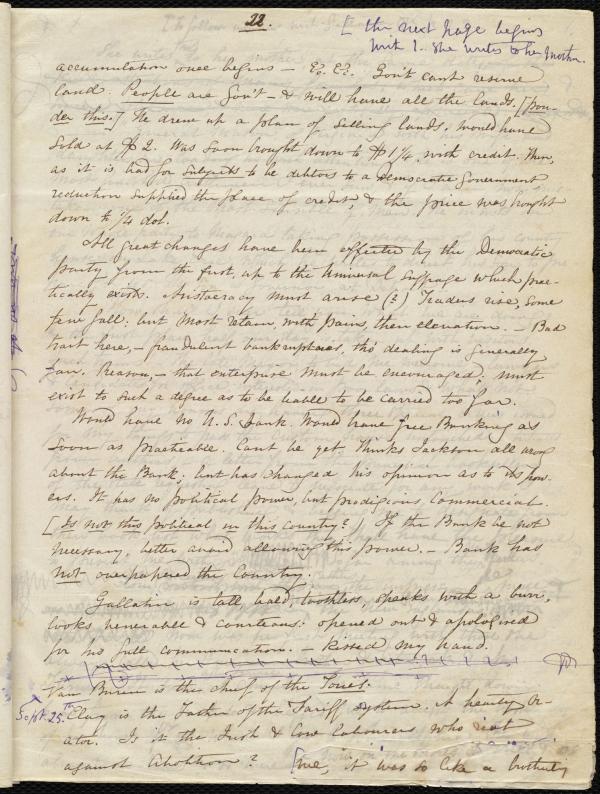 22.
[ the next page begins
with 1. She writes to her Mother.
accumulation once begins — &c. &c. Gov't can't resume
land. People are Gov't — & will have all the lands. [Pon-
der this.] He drew up a plan of selling lands. Would have
sold at $2. Was soon brought down to $1 1/4, with credit. Then,
as it is bad for subjects to be debtors to a Democratic Government
reduction supplied the place of credit, & the price was brought
down to 1/4 dol.
All great changes have been effected by the Democratic
party, from the first, up to the Universal Suffrage which prac-
tically exists. Aristocracy must arise (?) Traders rise, some
few fall: but most retain, with pains, their elevation. — Bad
trait here, — fraudulent bankruptcies, tho' dealing is generally
fair. Reason, — that enterprise must be encouraged; must
exist to such a degree as to be liable to be carried too far.
Would have no U.S. Bank. Would have free Banking as
soon as practicable. Can't be yet. Thinks Jackson all wrong
about the Bank; but has changed his opinion as to its pow-
ers. It has no political power, but prodigious Commercial.
[Is not this political in this country?) If the Bank be not
necessary, better avoid allowing this power. — Bank has
not overpapered the Country.
Gallatin is tall bald, toothless, speaks with a burr,
looks venerable & courteous: opened out & apologised
for no full communication. — Kissed my hand.
Van Buren is the chief of the Tories.
Sept. 25th Clay is the Father of the Tariff system. A hearty Or-
ator. Is it the Irish & low labourers who riot
against Abolition? [me, it was so like a brotherly